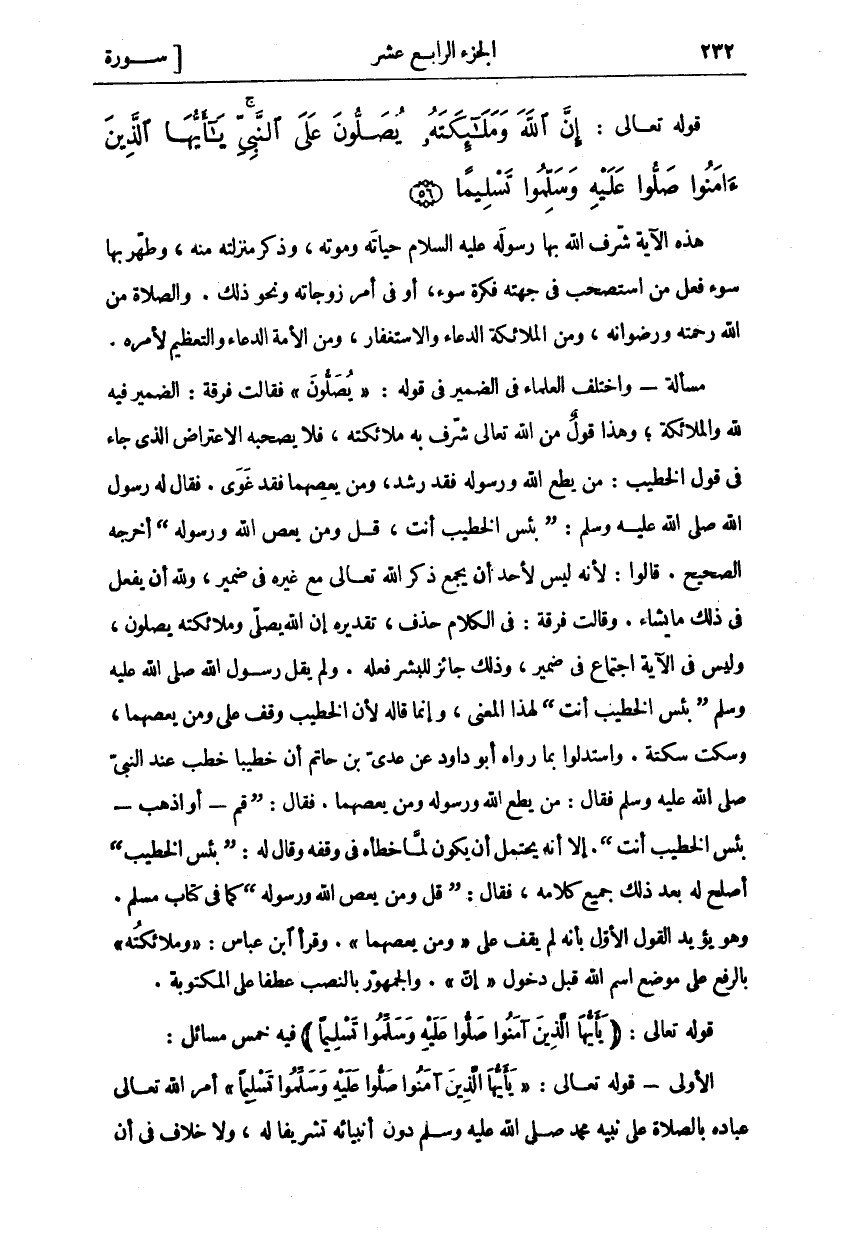 ٢٣٢ الجزء الرابع عشر [ ســورة
قوله تعالى : إِنَّ ٱللَّهَ وَمَلَٰٓئِكَتَهُۥ يُصَلُّونَ عَلَى ٱلنَّبِيِّۚ يَٰٓأَيُّهَا ٱلَّذِينَ
ءَامَنُوا صَلُّوا عَلَيْهِ وَسَلِّمُوا تَسْلِيمًا ﴿٥٦﴾
هذه الآية شرّف الله بها رسولَه عليه السلام حياتَه وموته ، وذكر منزلته منه ، وطهّر بها
سوء فعل من استصحب فى جهته فكرة سوء، أو فى أمر زوجاته ونحو ذلك . والصلاة من
الله رحمته ورضوانه ، ومن الملائكة الدعاء والاستغفار ، ومن الأمة الدعاء والتعظيم لأمره .
مسألة — واختلف العلماء فى الضمير فى قوله : « يُصَلُّونَ » فقالت فرقة : الضمير فيه
لله والملائكة ؛ وهذا قولٌ من الله تعالى شرّف به ملائكته ، فلا يصحبه الاعتراض الذى جاء
فى قول الخطيب : من يطع الله ورسوله فقد رشد، ومن يعصهما فقد غَوَى . فقال له رسول
الله صلى الله عليــه وسلم : " بئس الخطيب أنت ، قــل ومن يعص الله ورسوله " أخرجه
الصحيح . قالوا : لأنه ليس لأحد أن يجمع ذكر الله تعــالى مع غيره فى ضمير ، ولله أن يفعل
فى ذلك مايشاء . وقالت فرقة : فى الكلام حذف ، تقديره إن الله يصلّى وملائكته يصلون ،
وليس فى الآية اجتماع فى ضمير ، وذلك جائز للبشر فعله . ولم يقل رســول الله صلى الله عليه
وسلم " بئس الخطيب أنت " لهذا المعنى ، وإنما قاله لأن الخطيب وقف على ومن يعصهما ،
وسكت سكتة . واستدلوا بما رواه أبو داود عن عدىّ بن حاتم أن خطيبا خطب عند النبىّ
صلى الله عليه وسلم فقال : من يطع الله ورسوله ومن يعصهما . فقال : " قم — أو اذهب —
بئس الخطيب أنت ". إلا أنه يحتمل أن يكون لمَّا خطأه فى وقفه وقال له : " بئس الخطيب "
أصلح له بعد ذلك جميع كلامه ، فقال : " قل ومن يعص الله ورسوله " كما فى كتاب مسلم .
وهو يؤيد القول الأوّل بأنه لم يقف على « ومن يعصهما » . وقرأ ابن عباس : «وملائكتُه»
بالرفع على موضع اسم الله قبل دخول « إنّ » . والجمهور بالنصب عطفا على المكتوبة .
قوله تعالى : ﴿ يَأَيُّهَا الَّذِينَ آمَنُوا صَلُّوا عَلَيْهِ وَسَلِّمُوا تَسْلِيمًا ﴾ فيه خمس مسائل :
الأولى — قوله تعــالى : « يَأَيُّهَا الَّذِينَ آمَنُوا صَلُّوا عَلَيْهِ وَسَلِّمُوا تَسْلِيمًا » أمر الله تعالى
عباده بالصلاة على نبيه محمد صــلى الله عليه وسلم دون أنبيائه تشريفا له ، ولا خلاف فى أن